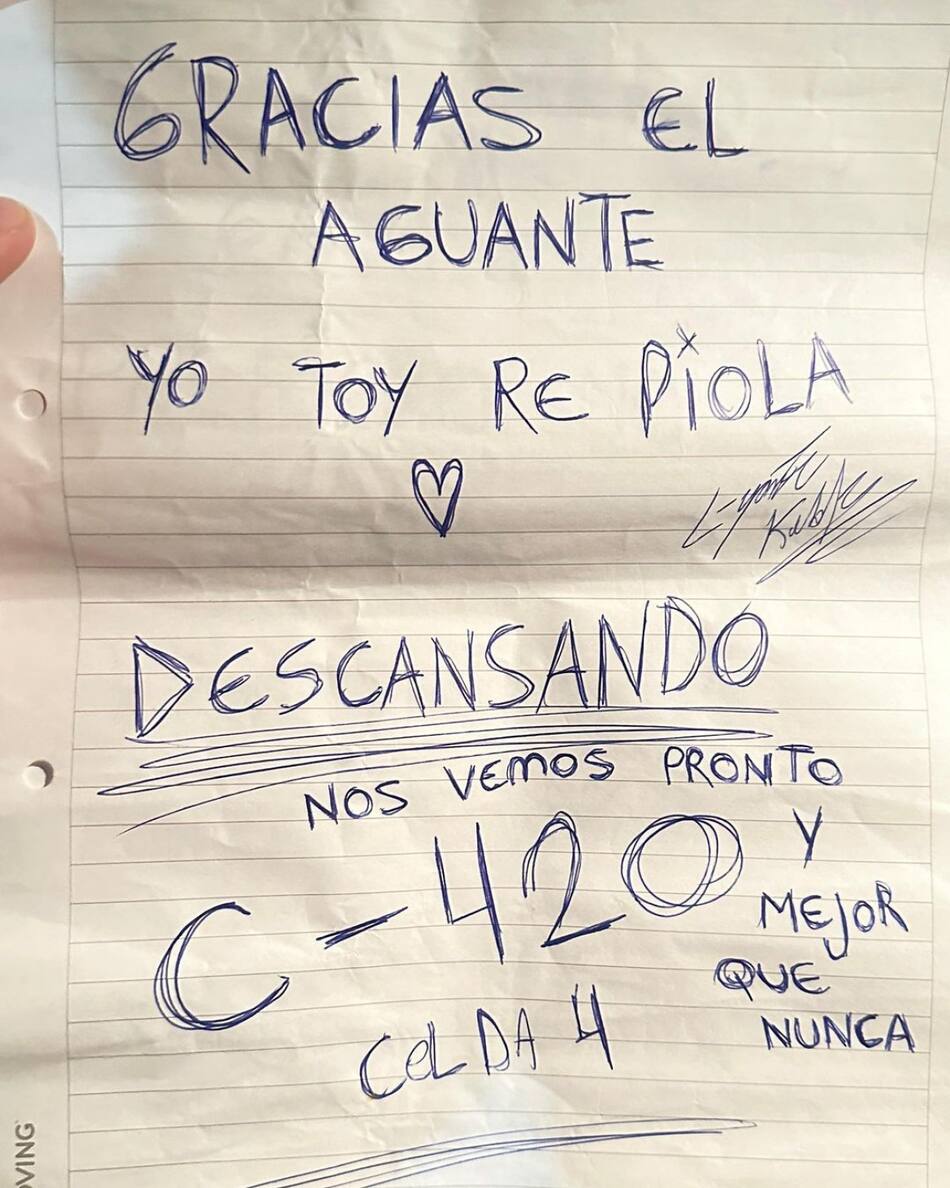 GRACIAS EL
AGUANTE
YO TOY RE PiOLA
DESCANSANDO
NOS VEMOS PRONTO
Y
MEJOR
QUE
NUNCA
C-420
CELDA 4
OVING